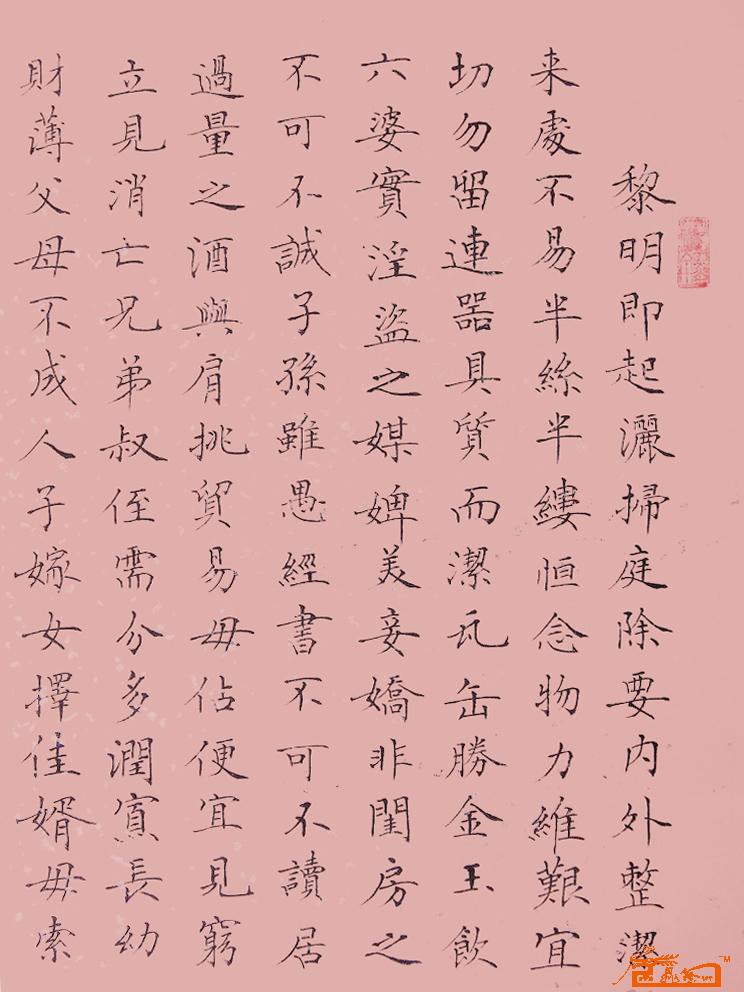 黎明即起灑掃庭除要内外整潔
来處不易半絲半縷恒念物力維艱宜
切勿留連器具質而潔瓦缶勝金玉飲
六婆實淫盗之媒婢美妾嬌非閨房之
不可不誠子孫雖愚經書不可不讀居
過量之酒與肩挑貿易毋佔便宜見窮
立見消亡兄弟叔侄需分多潤寡長幼
財薄父母不成人子嫁女擇佳婿毋索